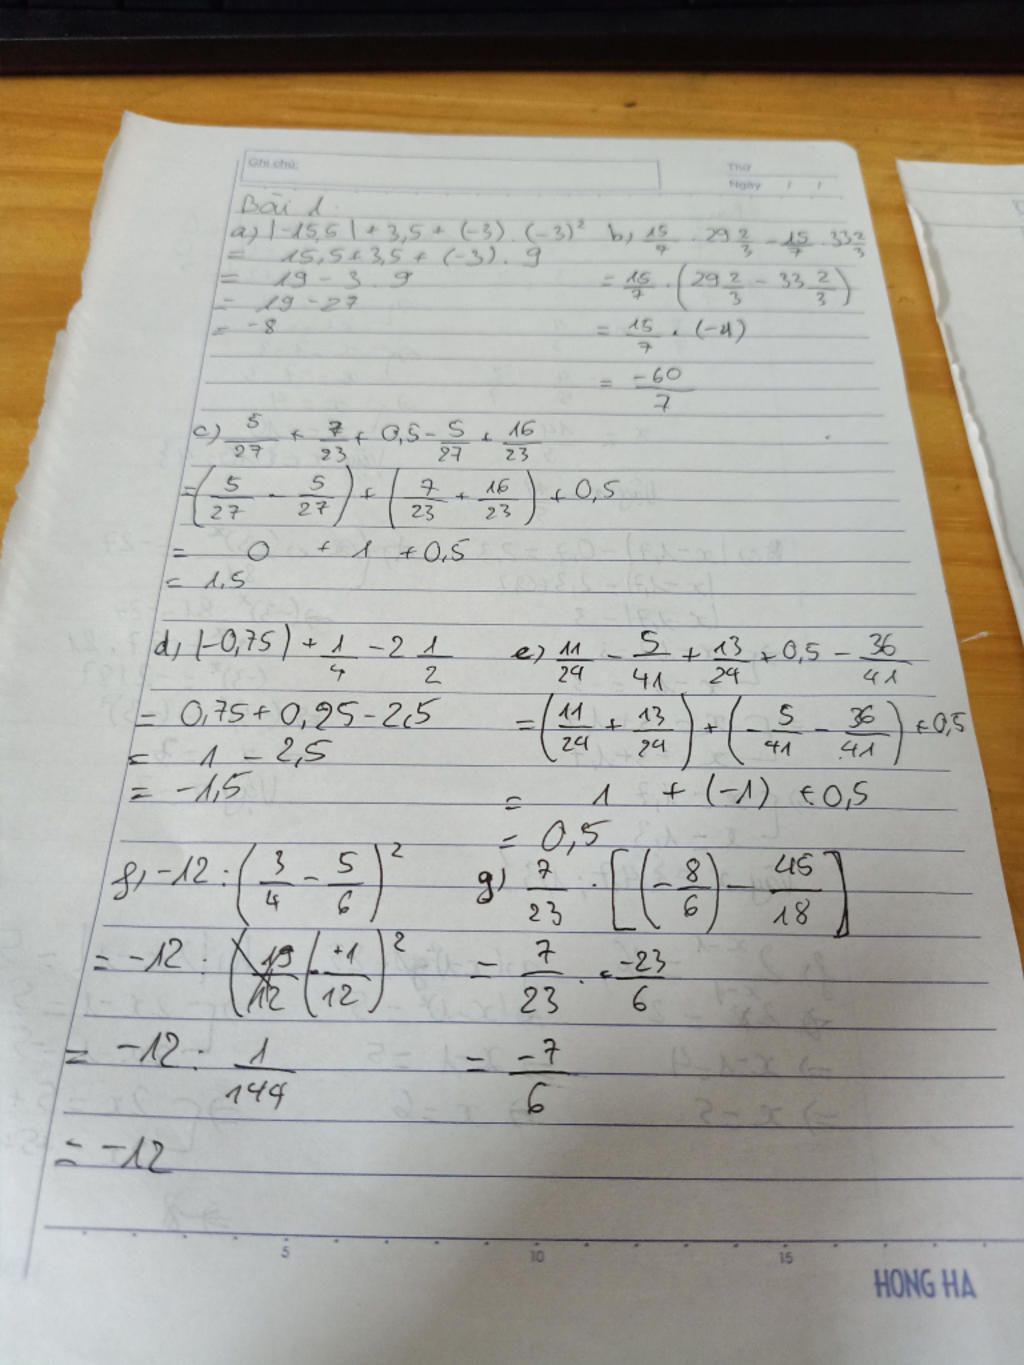 Ghi chú:
Thứ
Ngày / /
Bài 1.
a) |-15,5| + 3,5 + (-3) . (-3)²
= 15,5 + 3,5 + (-3) . 9
= 19 - 3 . 9
= 19 - 27
= -8
b) 15/7 . 29 2/3 - 15/7 . 33 2/3
= 15/7 . (29 2/3 - 33 2/3)
= 15/7 . (-4)
= -60/7
c) 5/27 + 7/23 + 0,5 - 5/27 + 16/23
= (5/27 - 5/27) + (7/23 + 16/23) + 0,5
= 0 + 1 + 0,5
= 1,5
d) |-0,75| + 1/4 - 2 1/2
= 0,75 + 0,25 - 2,5
= 1 - 2,5
= -1,5
e) 11/24 - 5/41 + 13/24 + 0,5 - 36/41
= (11/24 + 13/24) + (-5/41 - 36/41) + 0,5
= 1 + (-1) + 0,5
= 0,5
f) -12 : (3/4 - 5/6)²
= -12 : (-1/12)²
= -12 : 1/144
= -12
g) 7/23 . [(-8/6) - 45/18]
= 7/23 . -23/6
= -7/6
5 10 15
HONG HA